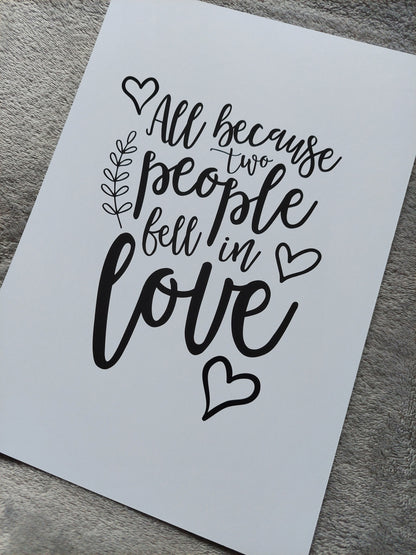 All because
two
people
fell in
love